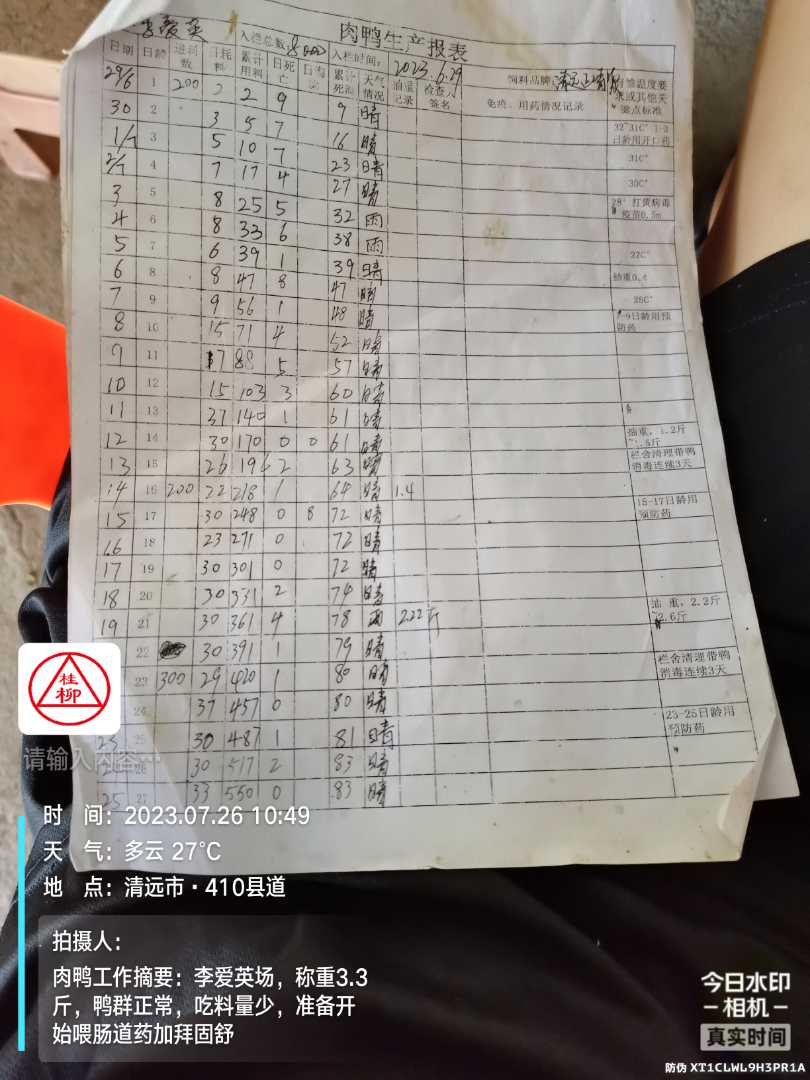 李爱英
肉鸭生产报表
入栏总数 8000 入栏时间: 2023.6.29 饲料品牌:
日期 日龄 进料数 日耗料 累计用料 日死亡 累计死淘 天气情况 油重记录 检查人签名 免疫、用药情况记录
29/6 1 200 2 2 9 9 晴
30 2 3 5 7 16 晴 32~31C° 1-3日龄用开口药
1/7 3 5 10 7 23 晴 31C°
2/7 4 7 17 4 27 晴 30C°
3 5 8 25 5 32 雨 28°打黄病毒疫苗0.5m
4 6 8 33 6 38 雨
5 7 6 39 1 39 晴
6 8 8 47 8 47 晴
7 9 9 56 1 48 晴
8 10 15 71 4 52 晴
9 11 17 88 5 57 晴
10 12 15 103 3 60 晴
11 13 37 140 1 61 晴
12 14 30 170 0 0 61 晴
13 15 26 196 2 63 晴 栏舍清理带鸭消毒连续3天
14 16 200 22 218 1 64 晴 1.4
15 17 30 248 0 8 72 晴 15-17日龄用预防药
16 18 23 271 0 72 晴
17 19 30 301 0 72 晴
18 20 30 331 2 74 晴
19 21 30 361 4 78 雨 2.22斤 油重，2.2斤~2.6斤
22 30 391 1 79 晴
23 300 29 420 1 80 晴 栏舍清理带鸭消毒连续3天
24 37 457 0 80 晴
25 30 487 1 81 晴 23-25日龄用预防药
26 30 517 2 83 晴
25 27 33 550 0 83 晴
桂柳
请输入内容…
时 间: 2023.07.26 10:49
天 气: 多云 27℃
地 点: 清远市·410县道
拍摄人:
肉鸭工作摘要: 李爱英场，称重3.3
斤，鸭群正常，吃料量少，准备开
始喂肠道药加拜固舒
今日水印
相机
真实时间
防伪 XT1CLWL9H3PR1A